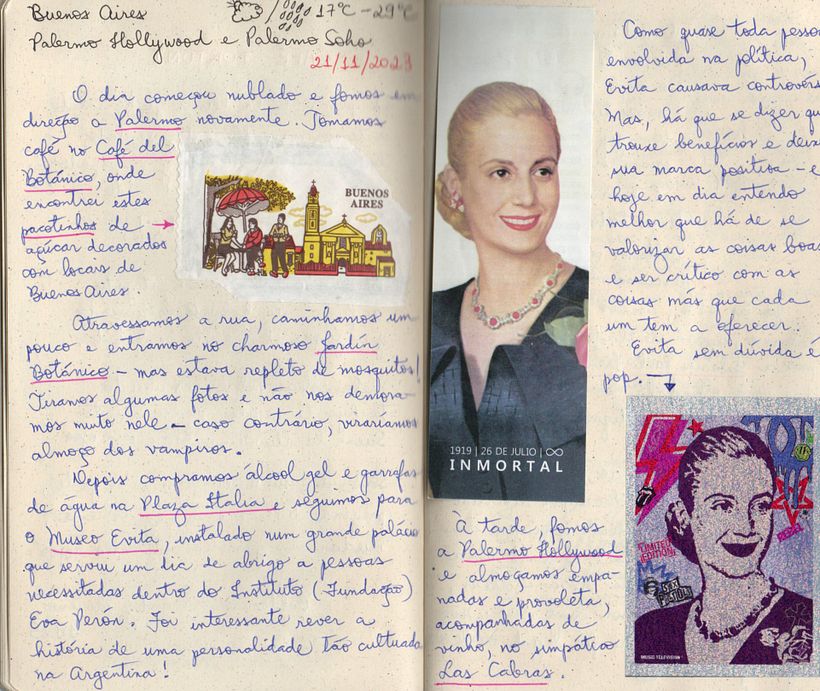 Buenos Aires
17°C - 29°C
Palermo Hollywood e Palermo Soho
21/11/2023
O dia começou nublado e fomos em
direção a Palermo novamente. Tomamos
café no Café del
Botánico, onde
encontrei estes
pacotinhos de →
açúcar decorados
com locais de
Buenos Aires.
BUENOS
AIRES
Atravessamos a rua, caminhamos um
pouco e entramos no charmoso Jardín
Botánico - mas estava repleto de mosquitos!
Tiramos algumas fotos e não nos demora-
mos muito nele - caso contrário, viraríamos
almoço dos vampiros.
Depois compramos álcool gel e garrafas
de água na Plaza Italia e seguimos para
o Museo Evita, instalado num grande palácio
que serviu um dia de abrigo a pessoas
necessitadas dentro do Instituto (Fundação)
Eva Perón. Foi interessante rever a
história de uma personalidade tão cultuada
na Argentina!
1919 | 26 DE JULIO | ∞
INMORTAL
Como quase toda pesso
envolvida na política,
Evita causava controvérs
Mas, há que se dizer qu
trouxe benefícios e deix
sua marca positiva - e
hoje em dia entendo
melhor que há de se
valorizar as coisas boas
e ser crítico com as
coisas más que cada
um tem a oferecer.
Evita sem dúvida é
pop.
LIMITED
EDITION!
REBEL
SEX
PISTOLS
MUSIC TELEVISION
À tarde, fomos
a Palermo Hollywood
e almoçamos empa-
nadas e provoleta,
acompanhadas de
vinho, no simpático
Las Cabras.